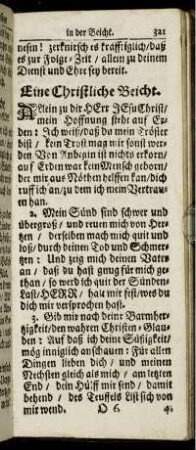 in der Beicht. 321
nesen! zerknirsch es kräfftiglich/ daß
es zur Folge-Zeit / allein zu deinem
Dienst und Ehre sey bereit.
Eine Christliche Beicht.
Allein zu dir HErr JEsu Christ/
mein Hoffnung steht auf Er-
den: Ich weiß/ daß du mein Tröster
bist / kein Trost mag mir sonst wer-
den Von Anbegin ist nichts erkorn/
auf Erden war kein Mensch geborn/
der mir aus Nöthen helffen kan/ dich
ruff ich an/ zu dem ich mein Vertrau-
en han.
2. Mein Sünd sind schwer und
übergroß/ und reuen mich von Her-
tzen / derselben mach mich quit und
loß/ durch deinen Tod und Schmer-
tzen: Und zeig mich deinen Vater
an/ daß du hast gnug für mich ge-
than/ so werd ich quit der Sünden-
Last/ HERR/ halt mir fest/ wes du
dich mir versprochen hast.
3. Gib mir nach deine Barmher-
tzigkeit/ den wahren Christen-Glau-
ben: Auf daß ich deine Süßigkeit/
mög inniglich anschauen: Für allen
Dingen lieben dich / und meinen
Nechsten gleich als mich / am letzten
End / dein Hülff mir send / damit
behend / des Teuffels List sich von
mir wend. O 6 4.